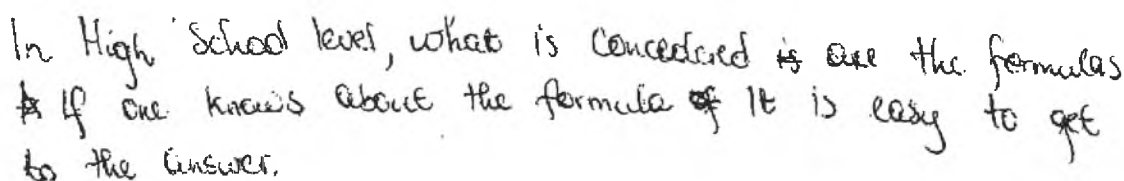 In High School level, what is Concedered is are the formulas
If one knows about the formula of It is easy to get
to the answer.